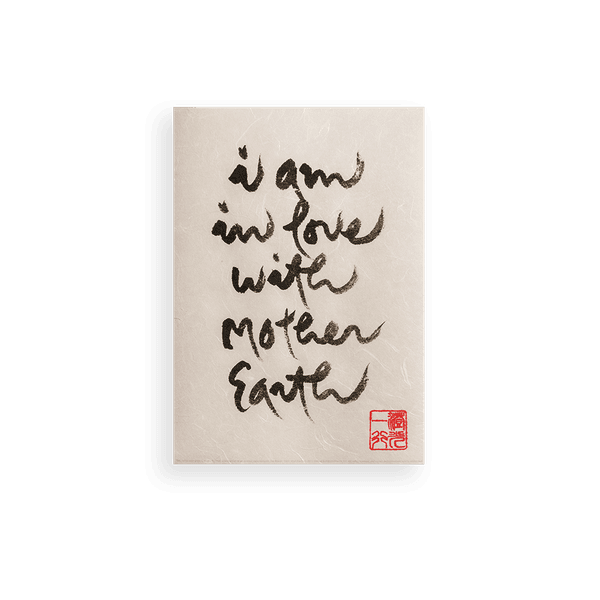 i am
in love
with
Mother
Earth
一行